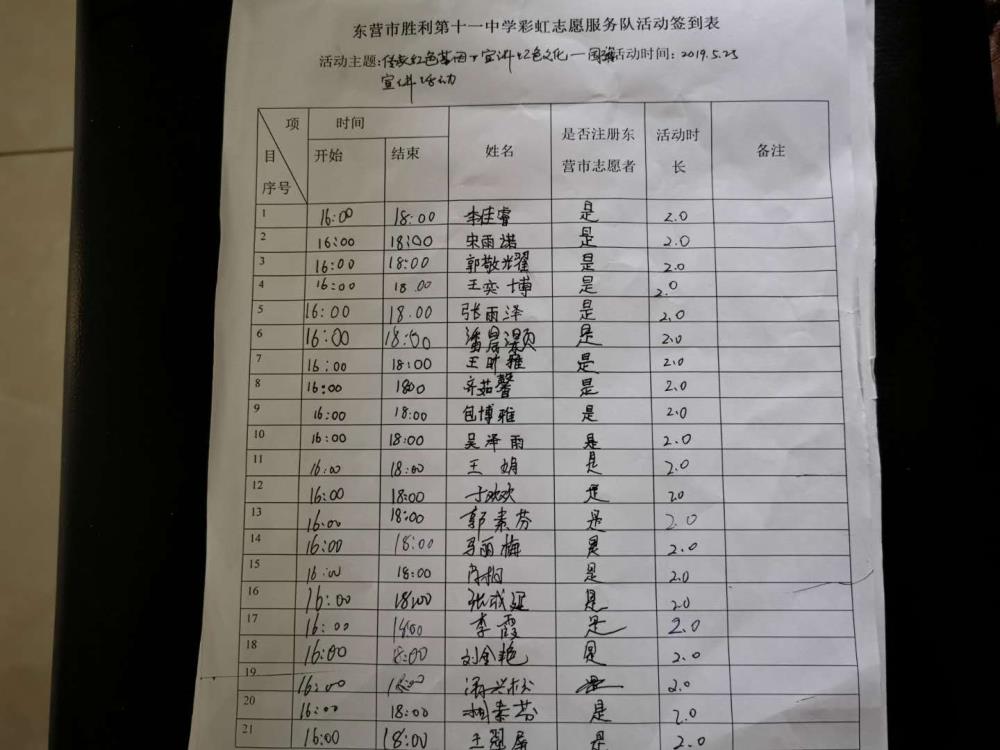 东营市胜利第十一中学彩虹志愿服务队活动签到表
活动主题:传承红色基因 宣讲红色文化一 活动时间:2019.5.25
宣讲活动
项 时间 姓名 是否注册东 活动时 备注
目 开始 结束 营市志愿者 长
序号
1 16:00 18:00 李佳睿 是 2.0
2 16:00 18:00 宋雨诺 是 2.0
3 16:00 18:00 郭敬光耀 是 2.0
4 16:00 18.00 王奕博 是 2.0
5 16:00 18.00 张雨泽 是 2.0
6 16:00 18:00 潘晨灏 是 2.0
7 16:00 18:00 王昕雅 是 2.0
8 16:00 1800 齐茹馨 是 2.0
9 16:00 18:00 包博雅 是 2.0
10 16:00 18:00 吴泽雨 是 2.0
11 16:00 18:00 王娟 是 2.0
12 16:00 18:00 于欢欢 是 2.0
13 16:00 18:00 郭素芬 是 2.0
14 16:00 18:00 马丽梅 是 2.0
15 16:00 18:00 是 2.0
16 16:00 18:00 张成延 是 2.0
17 16:00 1800 李霞 是 2.0
18 16:00 18:00 刘金艳 是 2.0
19 16:00 18:00 是 2.0
20 16:00 18:00 相素芬 是 2.0
21 16:00 18:00 王翠屏 是 2.0